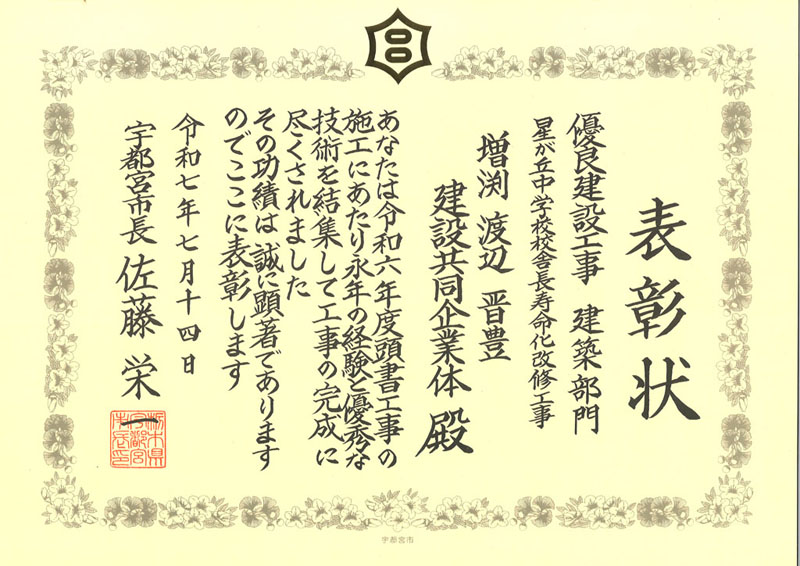 表彰状
優良建設工事 建築部門
星が丘中学校校舎長寿命化改修工事
増渕 渡辺 晋豊
建設共同企業体 殿
あなたは令和六年度頭書工事の
施工にあたり永年の経験と優秀な
技術を結集して工事の完成に
尽くされました
その功績は誠に顕著であります
のでここに表彰します
令和七年七月十四日
宇都宮市長 佐藤 栄一
栃木県
宇都宮
市長印
宇都宮市